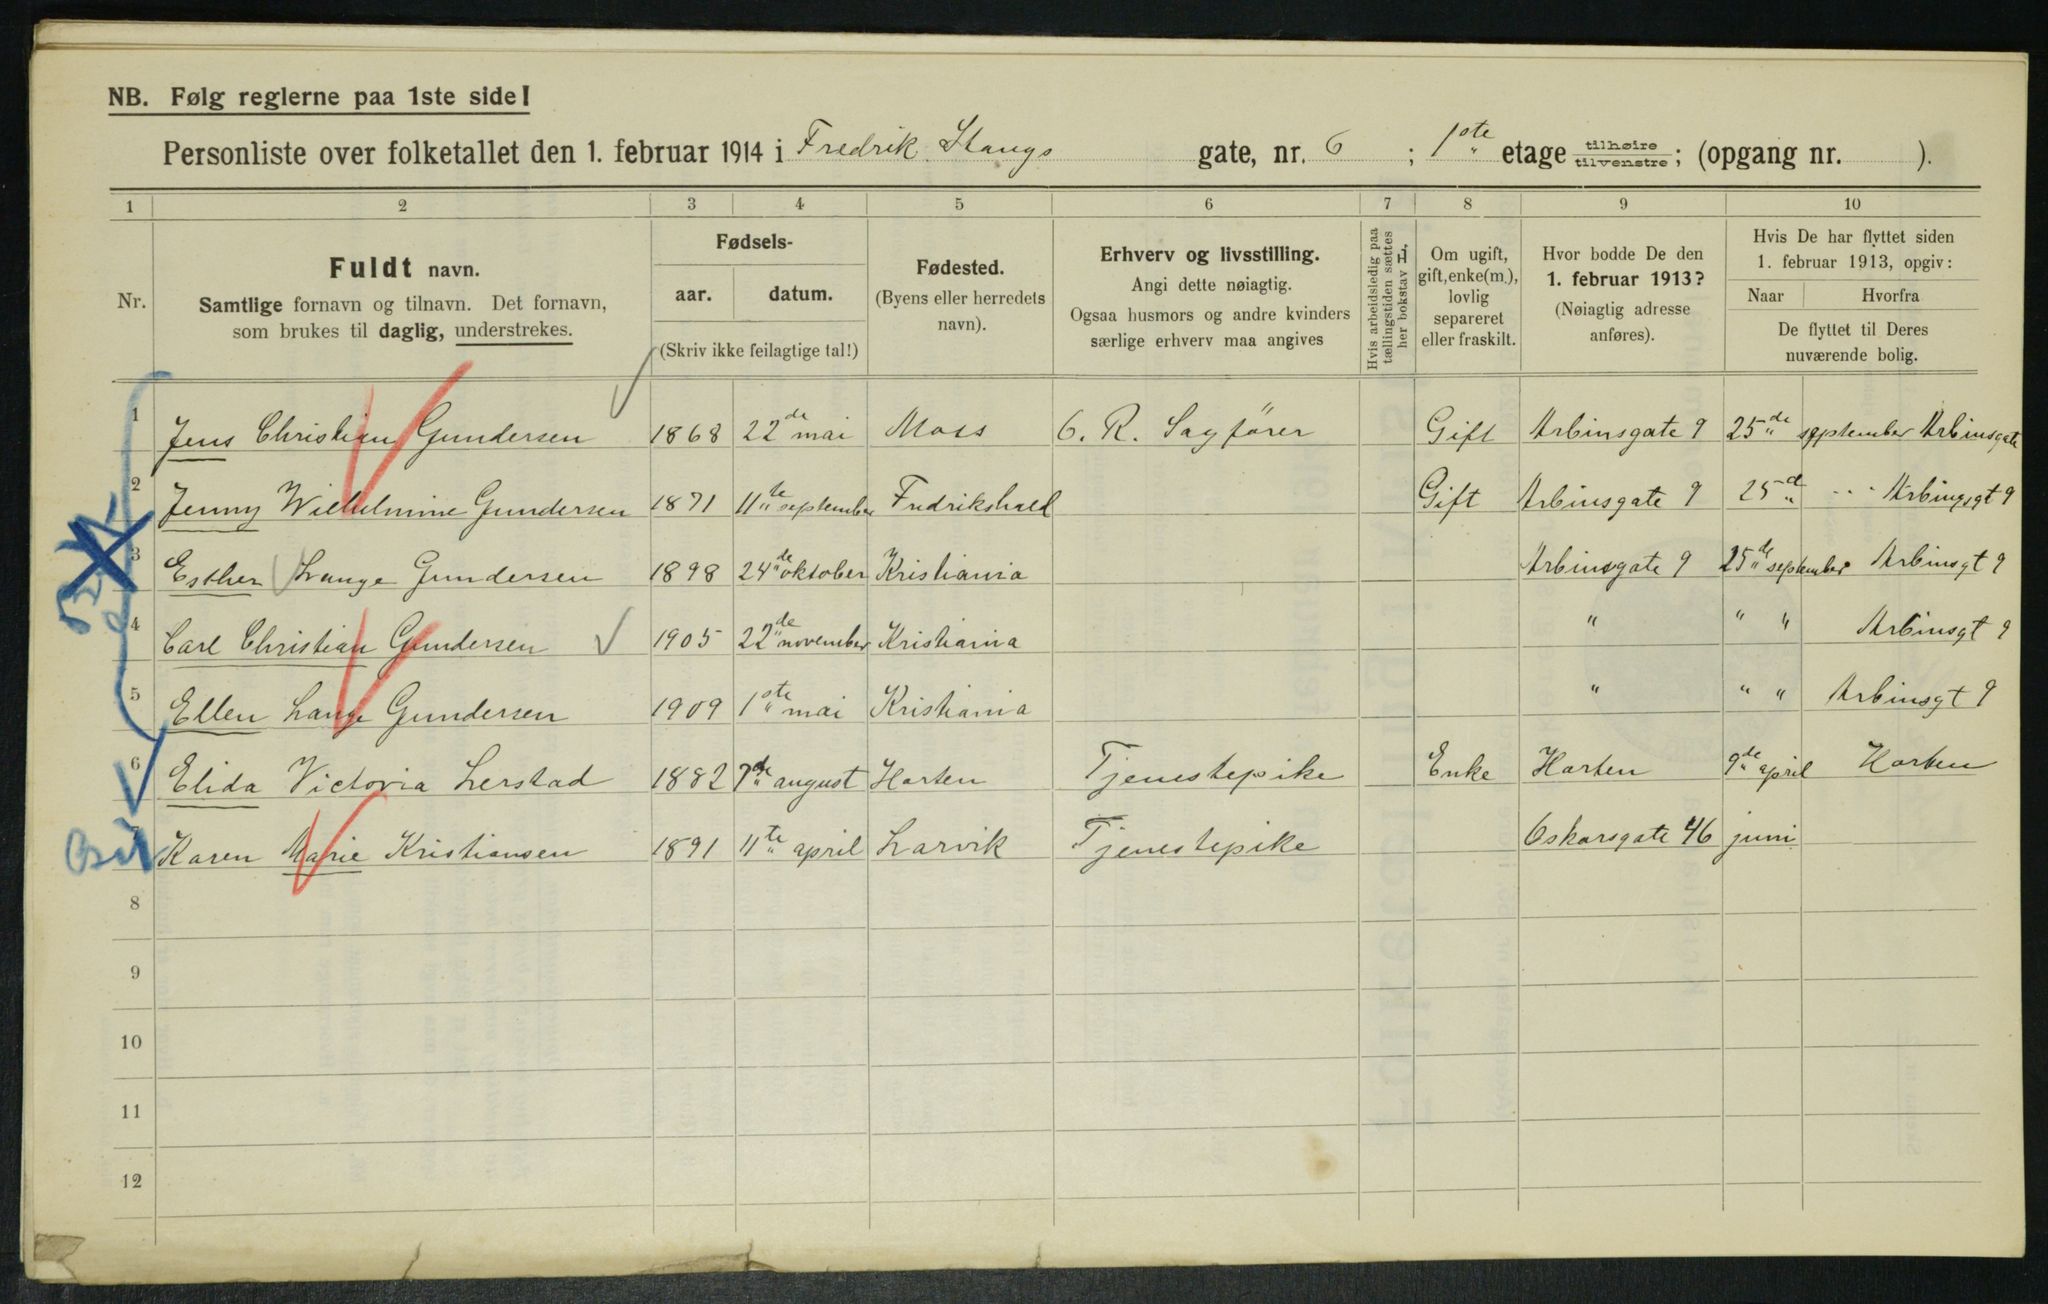 NB. Følg reglerne paa 1ste side!
Personliste over folketallet den 1. februar 1914 i Fredrik Stangs gate, nr. 6 ; 1ste etage tilhøire/tilvenstre; (opgang nr. ).
1 2 3 4 5 6 7 8 9 10
Nr.
Fuldt navn.
Samtlige fornavn og tilnavn. Det fornavn,
som brukes til daglig, understrekes.
Fødsels-
aar. datum.
(Skriv ikke feilagtige tal!)
Fødested.
(Byens eller herredets
navn).
Erhverv og livsstilling.
Angi dette nøiagtig.
Ogsaa husmors og andre kvinders
særlige erhverv maa angives
Hvis arbeidsledig paa
tællingstiden sættes
her bokstav L.
Om ugift,
gift, enke(m.),
lovlig
separeret
eller fraskilt.
Hvor bodde De den
1. februar 1913?
(Nøiagtig adresse
anføres).
Hvis De har flyttet siden
1. februar 1913, opgiv:
Naar Hvorfra
De flyttet til Deres
nuværende bolig.
1 Jens Christian Gundersen 1868 22de mai Moss O. R. Sagfører Gift Arbinsgate 9 25de september Arbinsgate
2 Jenny Wilhelmine Gundersen 1871 11te september Fredrikshald Gift Arbinsgate 9 25d " Arbinsgt 9
3 Esther Lange Gundersen 1898 24de oktober Kristiania Arbinsgate 9 25de september Arbinsgt 9
4 Carl Christian Gundersen 1905 22de november Kristiania " " " Arbinsgt 9
5 Ellen Lange Gundersen 1909 1ste mai Kristiania " " " Arbinsgt 9
6 Elida Victoria Lerstad 1882 7de august Horten Tjenestepike Enke Horten 9de april Horten
7 Karen Marie Kristiansen 1891 11te april Larvik Tjenestepike Oskarsgate 46 juni
8
9
10
11
12